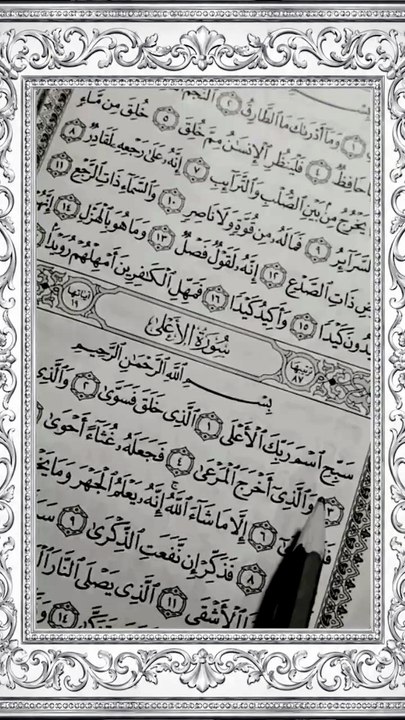 ١ وَمَآ أَدْرَىٰكَ مَا ٱلطَّارِقُ ٢ ٱلنَّجْمُ
حَافِظٌ ٤ فَلْيَنظُرِ ٱلْإِنسَٰنُ مِمَّ خُلِقَ ٥ خُلِقَ مِن مَّآءٍ
يَخْرُجُ مِنۢ بَيْنِ ٱلصُّلْبِ وَٱلتَّرَآئِبِ ٧ إِنَّهُۥ عَلَىٰ رَجْعِهِۦ لَقَادِرٌ ٨
ٱلسَّرَآئِرُ ٩ فَمَا لَهُۥ مِن قُوَّةٍ وَلَا نَاصِرٍ ١٠ وَٱلسَّمَآءِ ذَاتِ ٱلرَّجْعِ ١١
ذَاتِ ٱلصَّدْعِ ١٢ إِنَّهُۥ لَقَوْلٌ فَصْلٌ ١٣ وَمَا هُوَ بِٱلْهَزْلِ ١٤ إِنَّهُمْ
يدُونَ كَيْدًا ١٥ وَأَكِيدُ كَيْدًا ١٦ فَمَهِّلِ ٱلْكَٰفِرِينَ أَمْهِلْهُمْ رُوَيْدًۢا
ترتيبها ٨٧ سُورَةُ ٱلْأَعْلَىٰ آياتها ١٩
بِسْمِ ٱللَّهِ ٱلرَّحْمَٰنِ ٱلرَّحِيمِ
سَبِّحِ ٱسْمَ رَبِّكَ ٱلْأَعْلَى ١ ٱلَّذِى خَلَقَ فَسَوَّىٰ ٢ وَٱلَّذِى
٣ وَٱلَّذِىٓ أَخْرَجَ ٱلْمَرْعَىٰ ٤ فَجَعَلَهُۥ غُثَآءً أَحْوَىٰ
٦ إِلَّا مَا شَآءَ ٱللَّهُ ۚ إِنَّهُۥ يَعْلَمُ ٱلْجَهْرَ وَمَا يَخْ
٨ فَذَكِّرْ إِن نَّفَعَتِ ٱلذِّكْرَىٰ ٩ سَ
ٱلْأَشْقَى ١١ ٱلَّذِى يَصْلَى ٱلنَّارَ ٱلْ
١٤ وَ